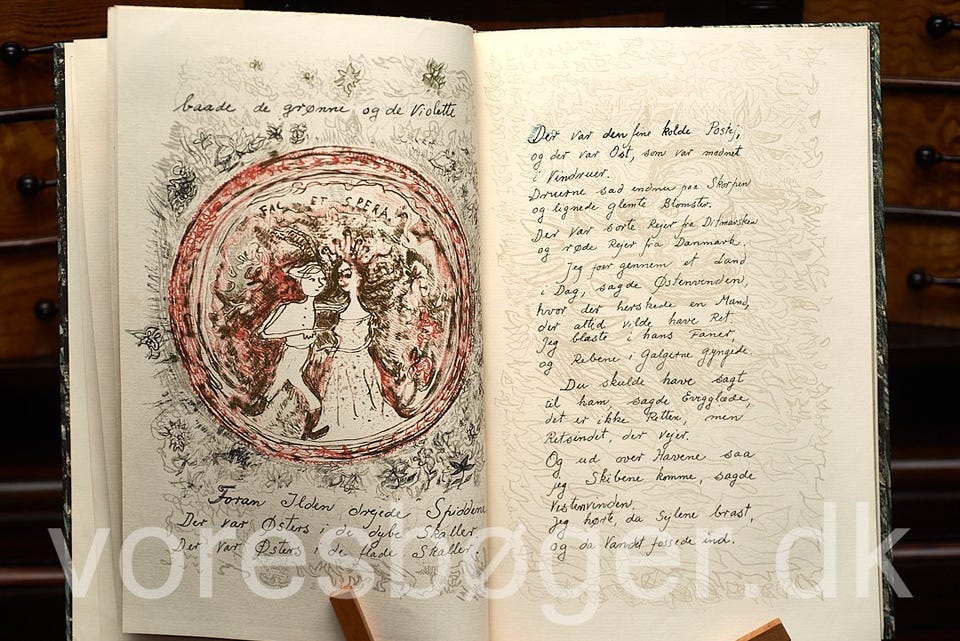 baade de grønne og de Violette
FAC ET SPERA
Foran Ilden drejede Spiddene
Der var Østers i de dybe Skaller
Der var Østers i de flade Skaller.
Der var den fine kolde Postej,
og der var Ost, som var modnet
i Vindruer.
Druerne sad endnu paa Skorpen
og lignede glemte Blomster.
Der var sorte Rejer fra Ditmarsken
og røde Rejer fra Danmark.
Jeg foer gennem et Land
i Dag, sagde Østenvinden,
hvor der herskede en Mand,
der altid vilde have Ret
Jeg blæste i hans Faner,
og Rebene i Galgerne gyngede.
Du skulde have sagt
til ham sagde Evigglæde,
det er ikke Retten, men
Retsindet, der vejer.
Og ud over Havene saa
jeg Skibene komme, sagde
Vestenvinden.
Jeg hørte, da Sejlene brast,
og da Vandet fossede ind.
voresbøger.dk